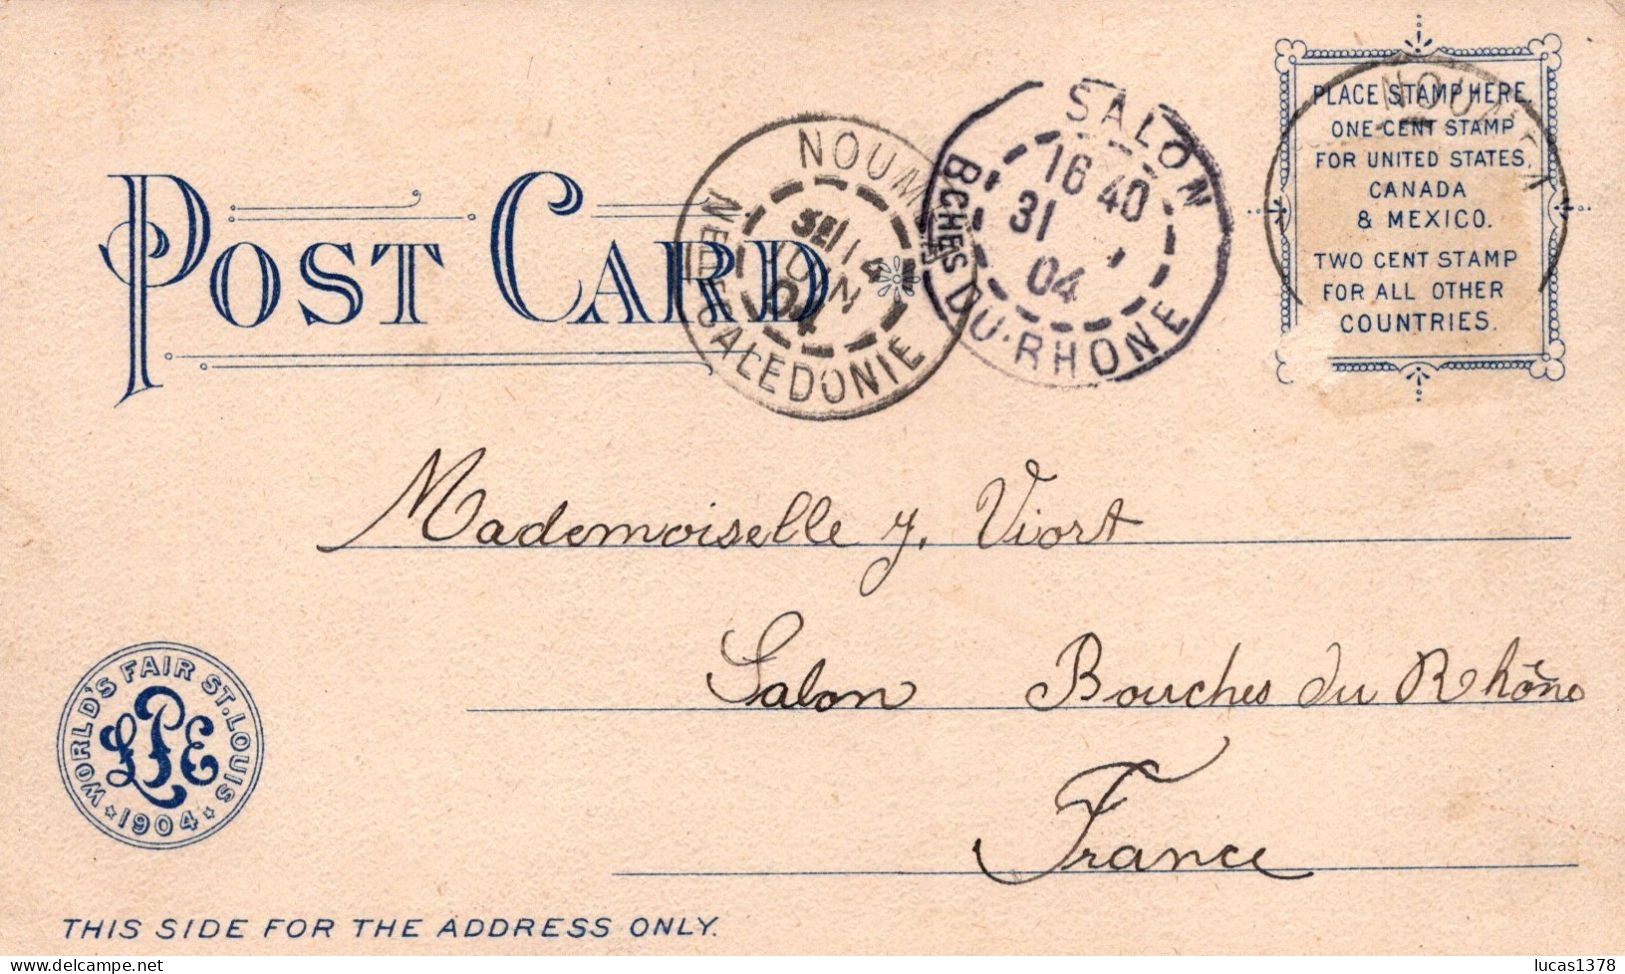 POST CARD
NOUMEA
14
JUIN
04
NELLE CALEDONIE
SALON
16 40
31
04
BCHES DU-RHONE
NOUMEA
PLACE STAMP HERE.
ONE CENT STAMP
FOR UNITED STATES,
CANADA
& MEXICO.
TWO CENT STAMP
FOR ALL OTHER
COUNTRIES.
Mademoiselle J. Viort
Salon Bouches du Rhône
France
WORLD'S FAIR ST. LOUIS
LPE
1904
THIS SIDE FOR THE ADDRESS ONLY.
lucas1378